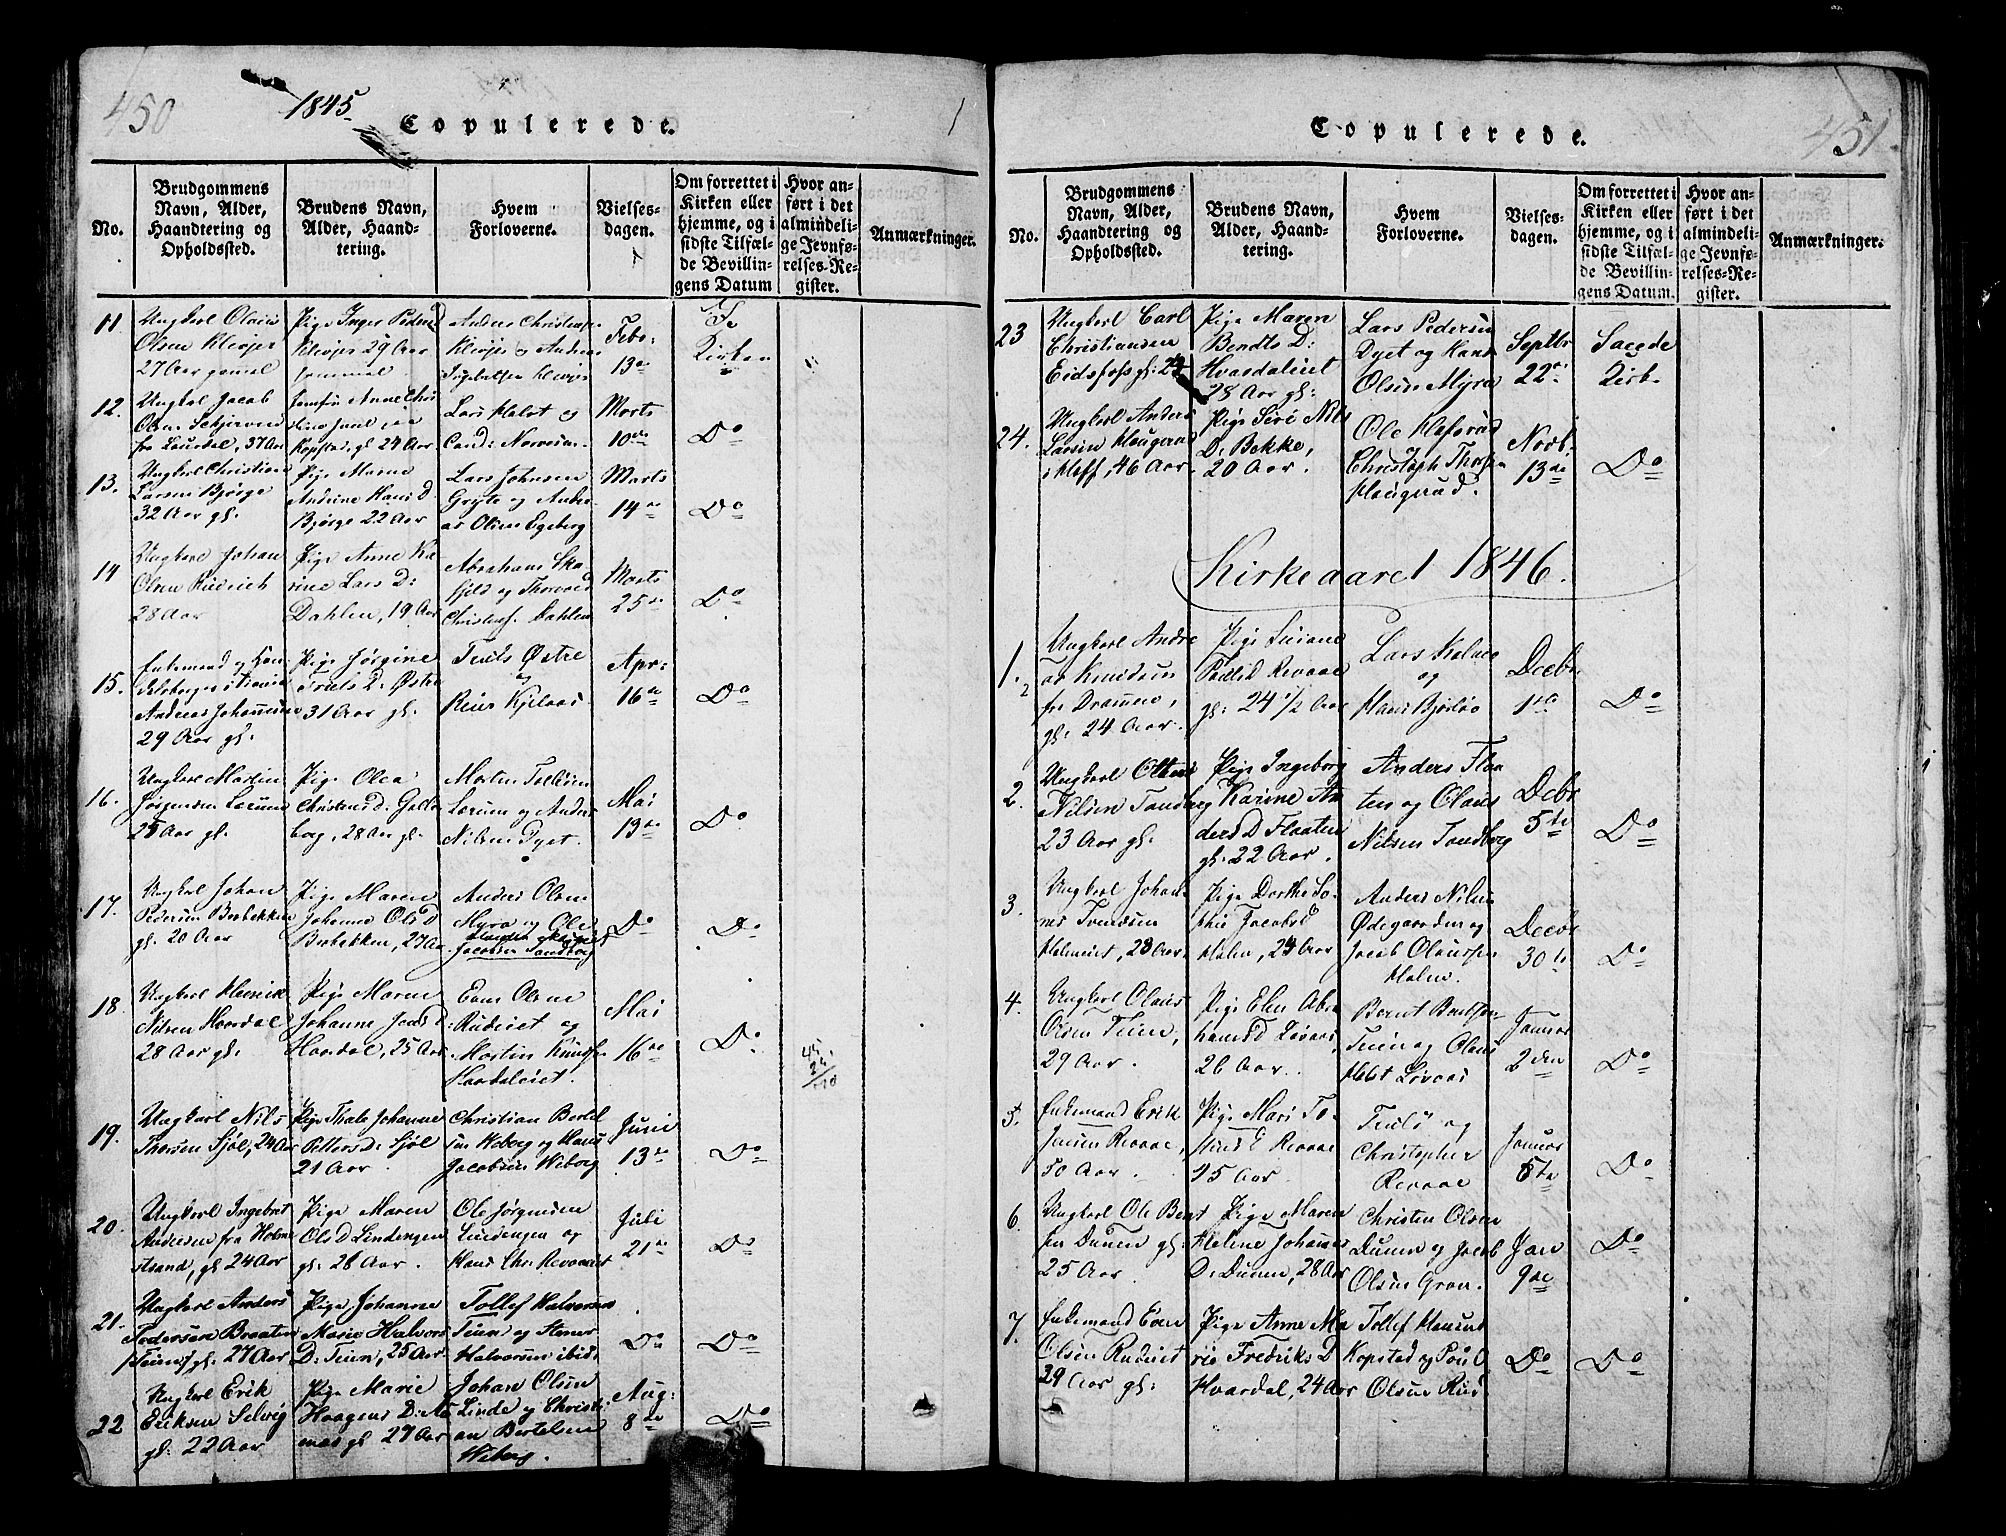 450
1845
Copulerede.
No.
Brudgommens Navn, Alder, Haandtering og Opholdssted.
Brudens Navn, Alder, Haandtering.
Hvem Forloverne.
Vielsesdagen.
Om forrettet i Kirken eller hjemme, og i sidste Tilfælde Bevillingens Datum
Hvor anført i det almindelige Jevnførelses-Register.
Anmærkninger.
11
Ungkarl Olaus
Olsen Klevjer
27 Aar gammel
Pige Inger Peders D
Klevjer 29 Aar
gammel
Anders Christens
Klevjer og Anders
Ingebretsen Klevjer
Febr:
13de
I
Kirken
12.
Ungkarl Jacob
Olsen
fra Laurdal, 37 Aar
Jomfru Anne Chris
tine
Kopstad, gl 24 Aar
Lars Hals og
Cand: Norvson
Marts
10de
Do
13.
Ungkarl Christian
Larsen Bjørge
32 Aar gl.
Pige Maren
Andrine Hans D.
Bjørge 22 Aar
Lars Johnsen
Gryte og Ander
as Olsen Egeberg
Marts
14de
Do
14
Ungkarl Johan
Olsen Rudrich
28 Aar
Pige Anne Ka
rine Lars D:
Dahlen, 19 Aar
Abraham Ska
fjeld og Thorvald
Christens. Dahlen
Marts
25de
Do
15.
Enkemand og
Andreas Johannesen
29 Aar gl.
Pige Jørgine
Truls D: Østre
31 Aar gl.
Truls Østre
og
Reier Kjelaas
Apr:
16de
Do
16.
Ungkarl Martin
Jørgensen Lerum
25 Aar gl.
Pige Olea
Christens D: Galle
berg, 28 Aar gl.
Morten Tollefsen
Lerum og Anders
Nilsen Dyet.
Mai
13de
Do
17.
Ungkarl Johan
Pedersen Berbekken
gl. 20 Aar
Pige Maren
Johanne Ols D
Berbekken, 27 Aar
Anders Olsen
Myra og Ole
Jacobsen Sandberg
Do
Do
18
Ungkarl Henrik
Nilsen Hvardal
28 Aar gl.
Pige Maren
Johanne Jens D
Hvardal, 25 Aar
Even Olsen
Rudeiet og
Martin Knuds.
Hvardaleiet.
Mai
16de
Do
19.
Ungkarl Nils
Thorsen Sjøl, 24 Aar
Pige Thale Johanne
Petters D: Sjøl
21 Aar
Christian Bertel
sen Weberg og Hans
Jacobsen Weberg
Juni
13de
Do
20.
Ungkarl Ingebret
Andersen fra Holme
strand, gl 24 Aar
Pige Maren
Ols D Lindengen
gl: 28 Aar.
Ole Jørgensen
Lindengen og
Hans Chr. Revaaeiet
Juli
21de
Do
21.
Ungkarl Anders
Pedersen Braaten
Teien gl. 27 Aar
Pige Johanne
Marie Halvors
D: Teien, 25 Aar
Tollef Halvorsen
Teien og Stener
Halvorsen ibid.
Do
Do
22
Ungkarl Erik
Eriksen Selvig
gl: 22 Aar
Pige Marie
Haagens D:
gl 27 Aar
Johan Olsen
Linde og Christi
an Bertelsen
Weberg.
Aug:
8de
Do
451.
Copulerede.
No.
Brudgommens Navn, Alder, Haandtering og Opholdssted.
Brudens Navn, Alder, Haandtering.
Hvem Forloverne.
Vielsesdagen.
Om forrettet i Kirken eller hjemme, og i sidste Tilfælde Bevillingens Datum.
Hvor anført i det almindelige Jevnførelses-Register.
Anmærkninger.
23
Ungkarl Carl
Christiansen
Eidsfoss gl: 24
Pige Maren
Bendts D:
Hvardaleiet
28 Aar gl:
Lars Pedersen
Dyet og Hans
Olsen Myra
Septbr
22de
Saugde
Kirk.
24.
Ungkarl Anders
Larsen Haugerud
46 Aar
Pige Siri Nils
D: Bekke,
20 Aar.
Ole Hafsrud
Christoph Thors.
Haugerud.
Novb.
13de
Do
Kirkeaaret 1846.
1.
Ungkarl Andre
as Knudsen
fr Drammen,
gl: 24 Aar.
Pige
Revaae
gl: 24 1/2 Aar
Lars
og
Hans Bjørløv
Decbr.
1ste
Do
2.
Ungkarl Otter
Nilsen Sandberg
23 Aar gl:
Pige Ingeborg
Karine An
ders D Flaaten
gl: 22 Aar.
Anders Flaa
ten og Olaus
Nilsen Sandberg
Debr
5te
Do
3.
Ungkarl Johan
nes Svendsen
Holmeiet, 28 Aar
Pige Dorthe So
phie Jacobs D
Holm, 24 Aar
Anders Nilsen
Ødegaarden og
Jacob Olaussen
Holm.
Decbr
30te
Do
4.
Ungkarl Olaus
Olsen Teien,
29 Aar.
Pige Elen Abra
hams D Løvaas,
26 Aar.
Bernt Berntsen
Teien og Olaus
Løvaas
Januar
2den
Do
5.
Enkemand Erik
Jensen Revaae,
50 Aar.
Pige Mari To
Revaae
25 Aar.
Truls og
Christopher
Revaae
Januar
5te
Do
6.
Ungkarl Ole Bent
sen Duuen gl:
25 Aar.
Pige Maren
Helene Johannes
D: Duuen, 28 Aar
Christen Olsen
Duuen og Jacob
Olsen Gran.
Jan
9de
Do
7.
Enkemand Even
Olsen Rudeiet
39 Aar gl:
Pige Anne Ma
rie Fredriks D
Hvardal, 24 Aar
Tollef Hansen
Kopstad og Poul
Olsen Rud
Do
Do